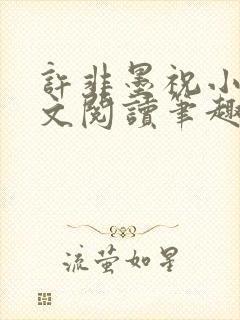 許非墨祝小
文閱讀筆趣
流螢如星